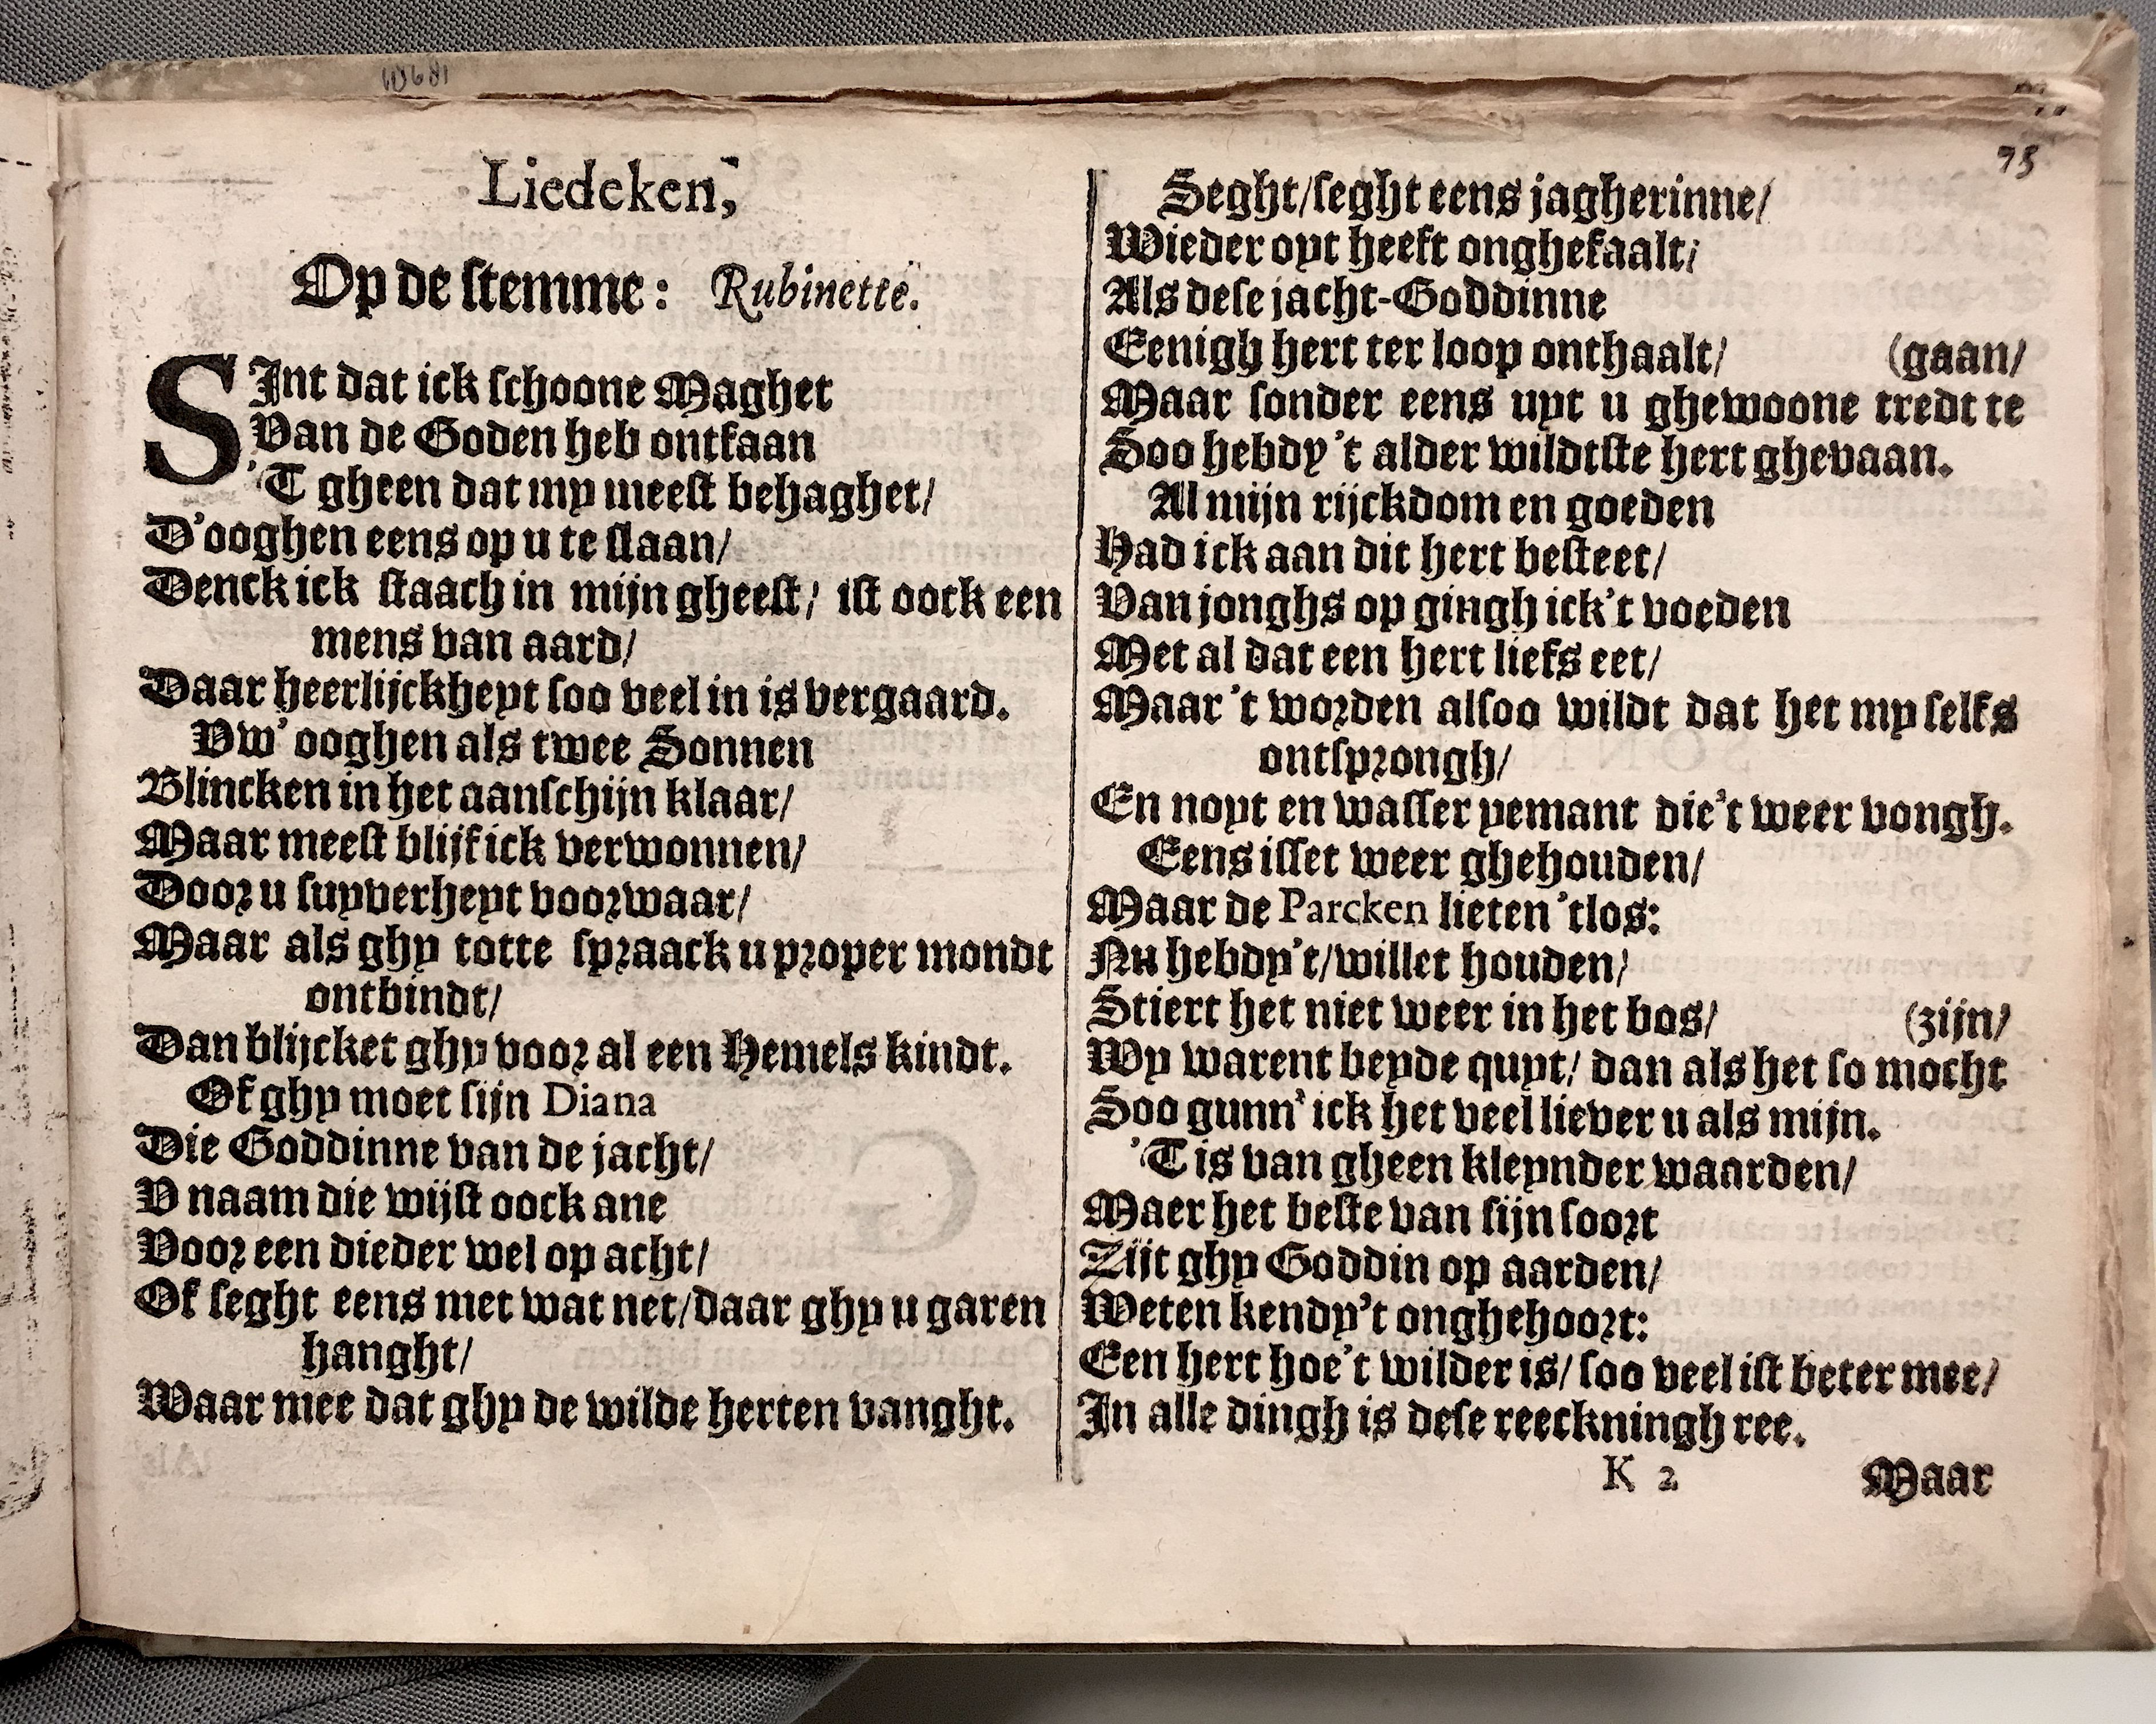 Liedeken,
Op de stemme: Rubinette.
SInt dat ick schoone Maghet
Van de Goden heb ontfaan
'T gheen dat my meest behaghet/
D'ooghen eens op u te slaan/
Denck ick staach in mijn gheest/ ist oock een
mens van aard/
Daar heerlijckheyt soo veel in is vergaard.
Vw' ooghen als twee Sonnen
Blincken in het aanschijn klaar/
Maar meest blijf ick verwonnen/
Door u suyverheyt voorwaar/
Maar als ghy totte spraack u proper mondt
ontbindt/
Dan blijcket ghy voor al een Hemels kindt.
Of ghy moet sijn Diana
Die Goddinne van de jacht/
V naam die wijst oock ane
Voor een dieder wel op acht/
Of seght eens met wat net/daar ghy u garen
hanght/
Waar mee dat ghy de wilde herten vanght.
75
Seght/seght eens jagherinne/
Wieder oyt heeft onghefaalt/
Als dese jacht-Goddinne
Eenigh hert ter loop onthaalt/ (gaan/
Maar sonder eens uyt u ghewoone tredt te
Soo hebdy't alder wildtste hert ghevaan.
Al mijn rijckdom en goeden
Had ick aan dit hert besteet/
Van jonghs op gingh ick't voeden
Met al dat een hert liefs eet/
Maar 't worden alsoo wildt dat het my selfs
ontsprongh/
En noyt en wasser yemant die't weer vongh.
Eens isset weer ghehouden/
Maar de Parcken lieten 'tlos:
Nu hebdy't/willet houden/
Stiert het niet weer in het bos/ (zijn/
Wy warent beyde quyt/ dan als het so mocht
Soo gunn' ick het veel liever u als mijn.
'T is van gheen kleynder waarden/
Maer het beste van sijn soort
Zijt ghy Goddin op aarden/
Weten kendy't onghehoort:
Een hert hoe't wilder is/ soo veel ist beter mee/
In alle dingh is dese reeckningh ree.
K 2 Maar